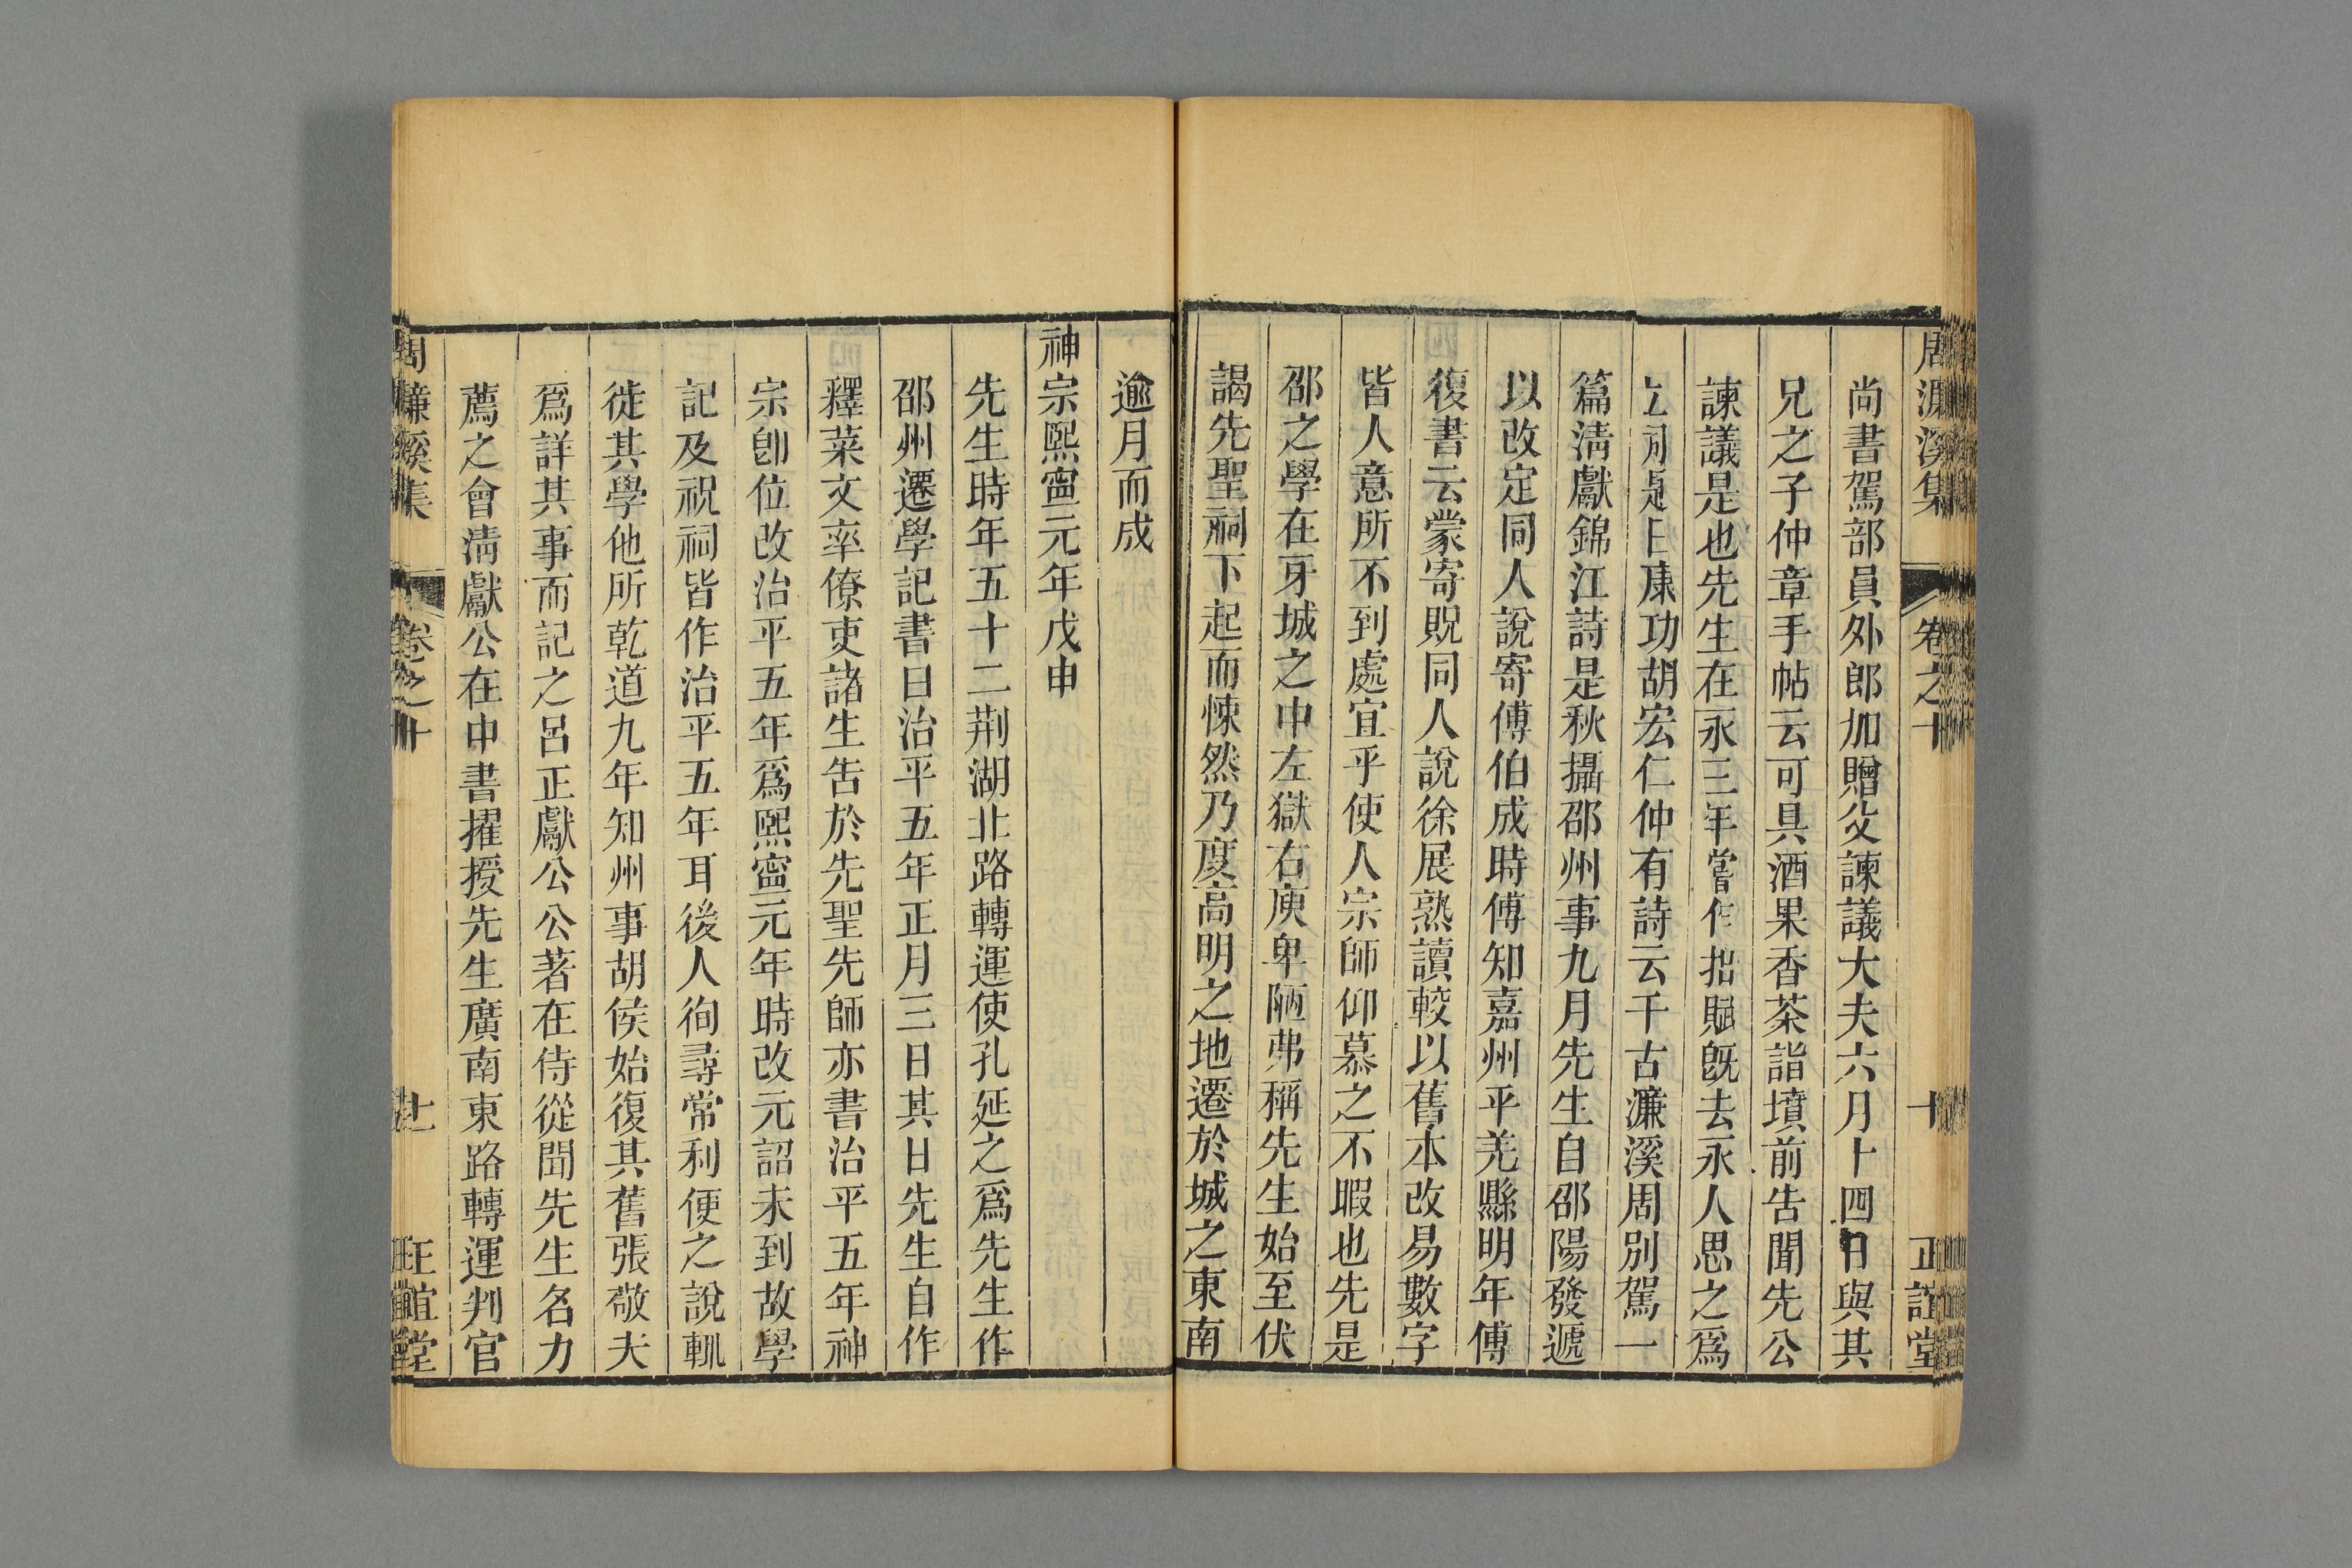 周濂溪集 卷之十 十 正誼堂
尚書駕部員外郎加贈父諫議大夫六月十四日與其
兄之子仲章手帖云可具酒果香茶詣墳前告聞先公
諫議是也先生在永三年嘗作拙賦旣去永人思之爲
立祠題曰康功胡宏仁仲有詩云千古濂溪周別駕一
篇淸獻錦江詩是秋攝邵州事九月先生自邵陽發遞
以改定同人說寄傅伯成時傅知嘉州平羌縣明年傅
復書云蒙寄貺同人說徐展熟讀較以舊本改易數字
皆人意所不到處宜乎使人宗師仰慕之不暇也先是
邵之學在牙城之中左獄右庾卑陋弗稱先生始至伏
謁先聖祠下起而悚然乃度高明之地遷於城之東南
逾月而成
神宗熙寧元年戊申
先生時年五十二荆湖北路轉運使孔延之爲先生作
邵州遷學記書曰治平五年正月三日其日先生自作
釋菜文率僚吏諸生告於先聖先師亦書治平五年神
宗卽位改治平五年爲熙寧元年時改元詔未到故學
記及祝祠皆作治平五年耳後人徇尋常利便之說輒
徙其學他所乾道九年知州事胡侯始復其舊張敬夫
爲詳其事而記之呂正獻公公著在侍從聞先生名力
薦之會淸獻公在中書擢授先生廣南東路轉運判官
周濂溪集 卷之十 十 正誼堂